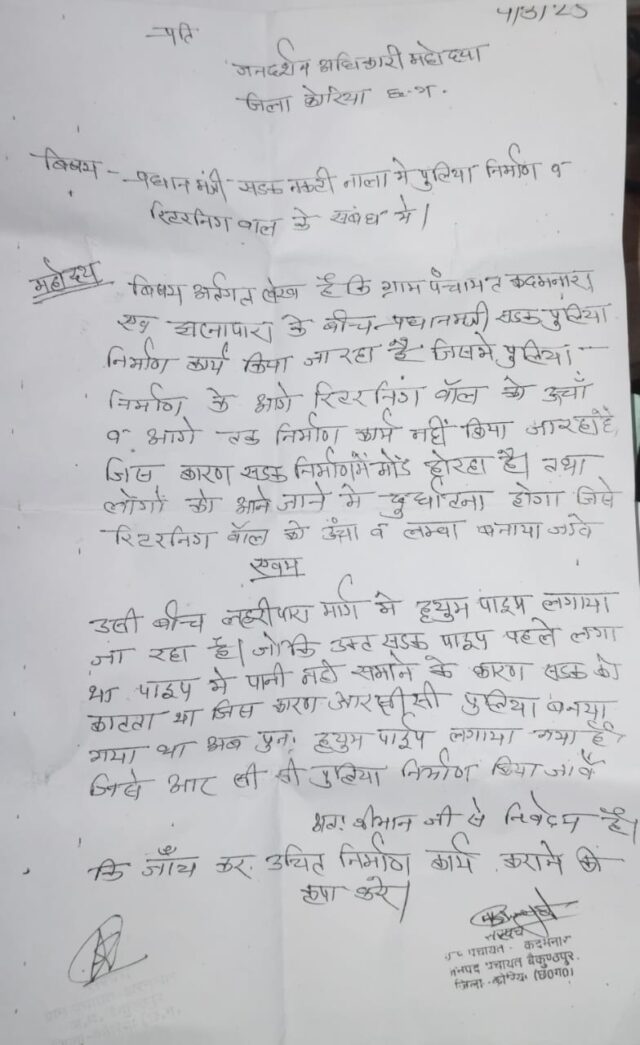 4/3/25
प्रति
जनदर्शन अधिकारी महोदया
जिला कोरिया छ.ग.
विषय - प्रधान मंत्री सडक नकटी नाला मे पुलिया निर्माण व
रिटरनिग वाल के सबंध मे।
महोदय विषय अर्तगत लेख है कि ग्राम पंचायत कदमनारा
एवं डालापारा के बीच प्रधानमंत्री सडक पुलिया
निर्माण कार्य किया जा रहा है जिसमे पुलिया
निर्माण के आगे रिटरनिंग वॉल को ऊचाँ
व आगे तक निर्माण कार्य नहीं किया जा रहा है,
जिस कारण सडक निर्माण में मोड हो रहा है। तथा
लोगों को आने जाने मे दुर्घाटना होगा जिसे
रिटरनिग वॉल को ऊंचा व लम्बा बनाया जावे
एवम
उसी बीच नहरीपारा मार्ग मे हयुम पाइप लगाया
जा रहा है। जोकि उक्ट सडक पाइप पहले लगा
था पाइप मे पानी नही समाने के कारण सडक को
काटता था जिस कारण आर सी सी पुलिया बनाया
गया था अब पुनः हयुम पाईप लगाया गया है
जिसे आर सी सी पुलिया निर्माण किया जावें
अतः श्रीमान जी से निवेदन है।
कि जाँच कर उचित निर्माण कार्य कराने की
कृपा करे।
सरपंच
पंचायत - कदमनारा
जनपद पंचायत बैकुण्ठपुर
जिला-कोरिया (छ०ग०)